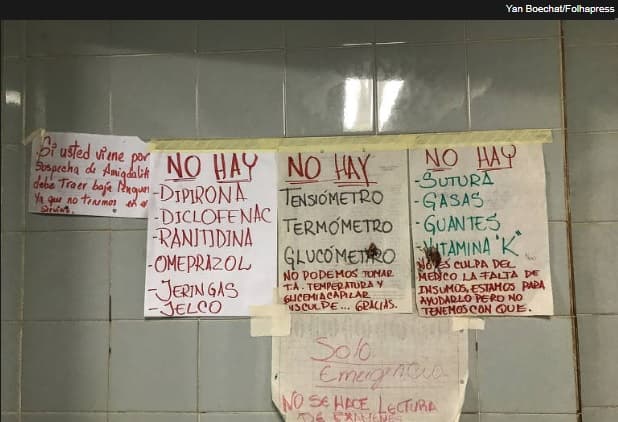 Yan Boechat/Folhapress
Si usted viene por
Sospecha de Amigdalitis
debe Traer baja lenguas
Ya que no tenemos en el
servicio.
NO HAY
-DIPIRONA
-DICLOFENAC
-RANITIDINA
-OMEPRAZOL
-JERINGAS
-JELCO
NO HAY
TENSIÓMETRO
TERMÓMETRO
GLUCÓMETRO
NO PODEMOS TOMAR
T.A. TEMPERATURA Y
GLICEMIA CAPILAR
DISCULPE... GRACIAS.
NO HAY
-SUTURA
-GASAS
-GUANTES
-VITAMINA "K"
NO ES CULPA DEL
MEDICO LA FALTA DE
INSUMOS, ESTAMOS PARA
AYUDARLO PERO NO
TENEMOS CON QUE.
Solo
Emergencia
NO SE HACE LECTURA
DE EXÁMENES